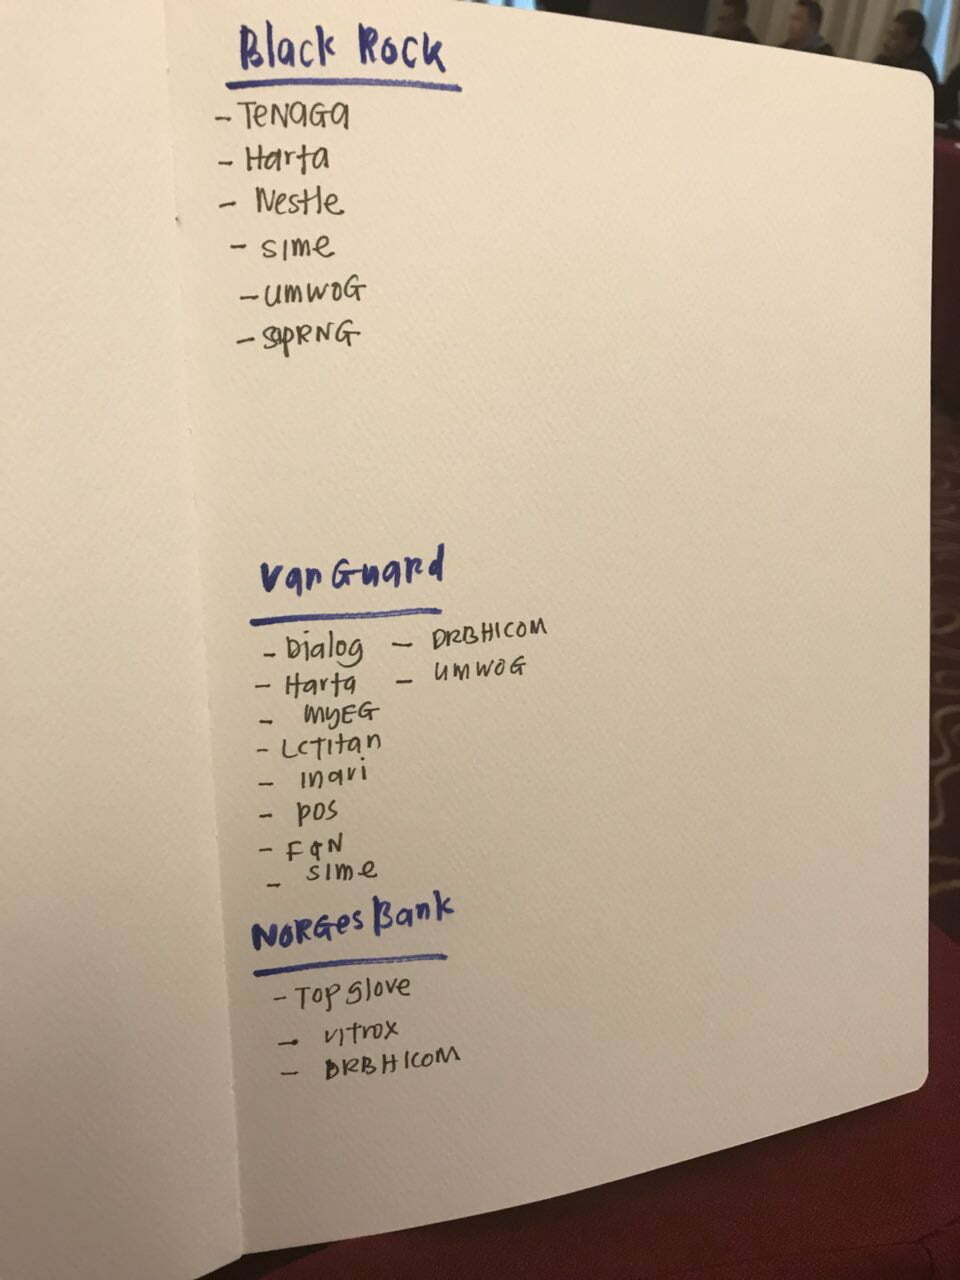 Black Rock
- TENAGA
- Harta
- Nestle
- sime
- UMWOG
- SAPRNG
VanGuard
- Dialog - DRBHICOM
- Harta - UMWOG
- MyEG
- LCTitan
- Inari
- pos
- F&N
- sime
NORGes Bank
- Top glove
- Vitrox
- DRBHICOM